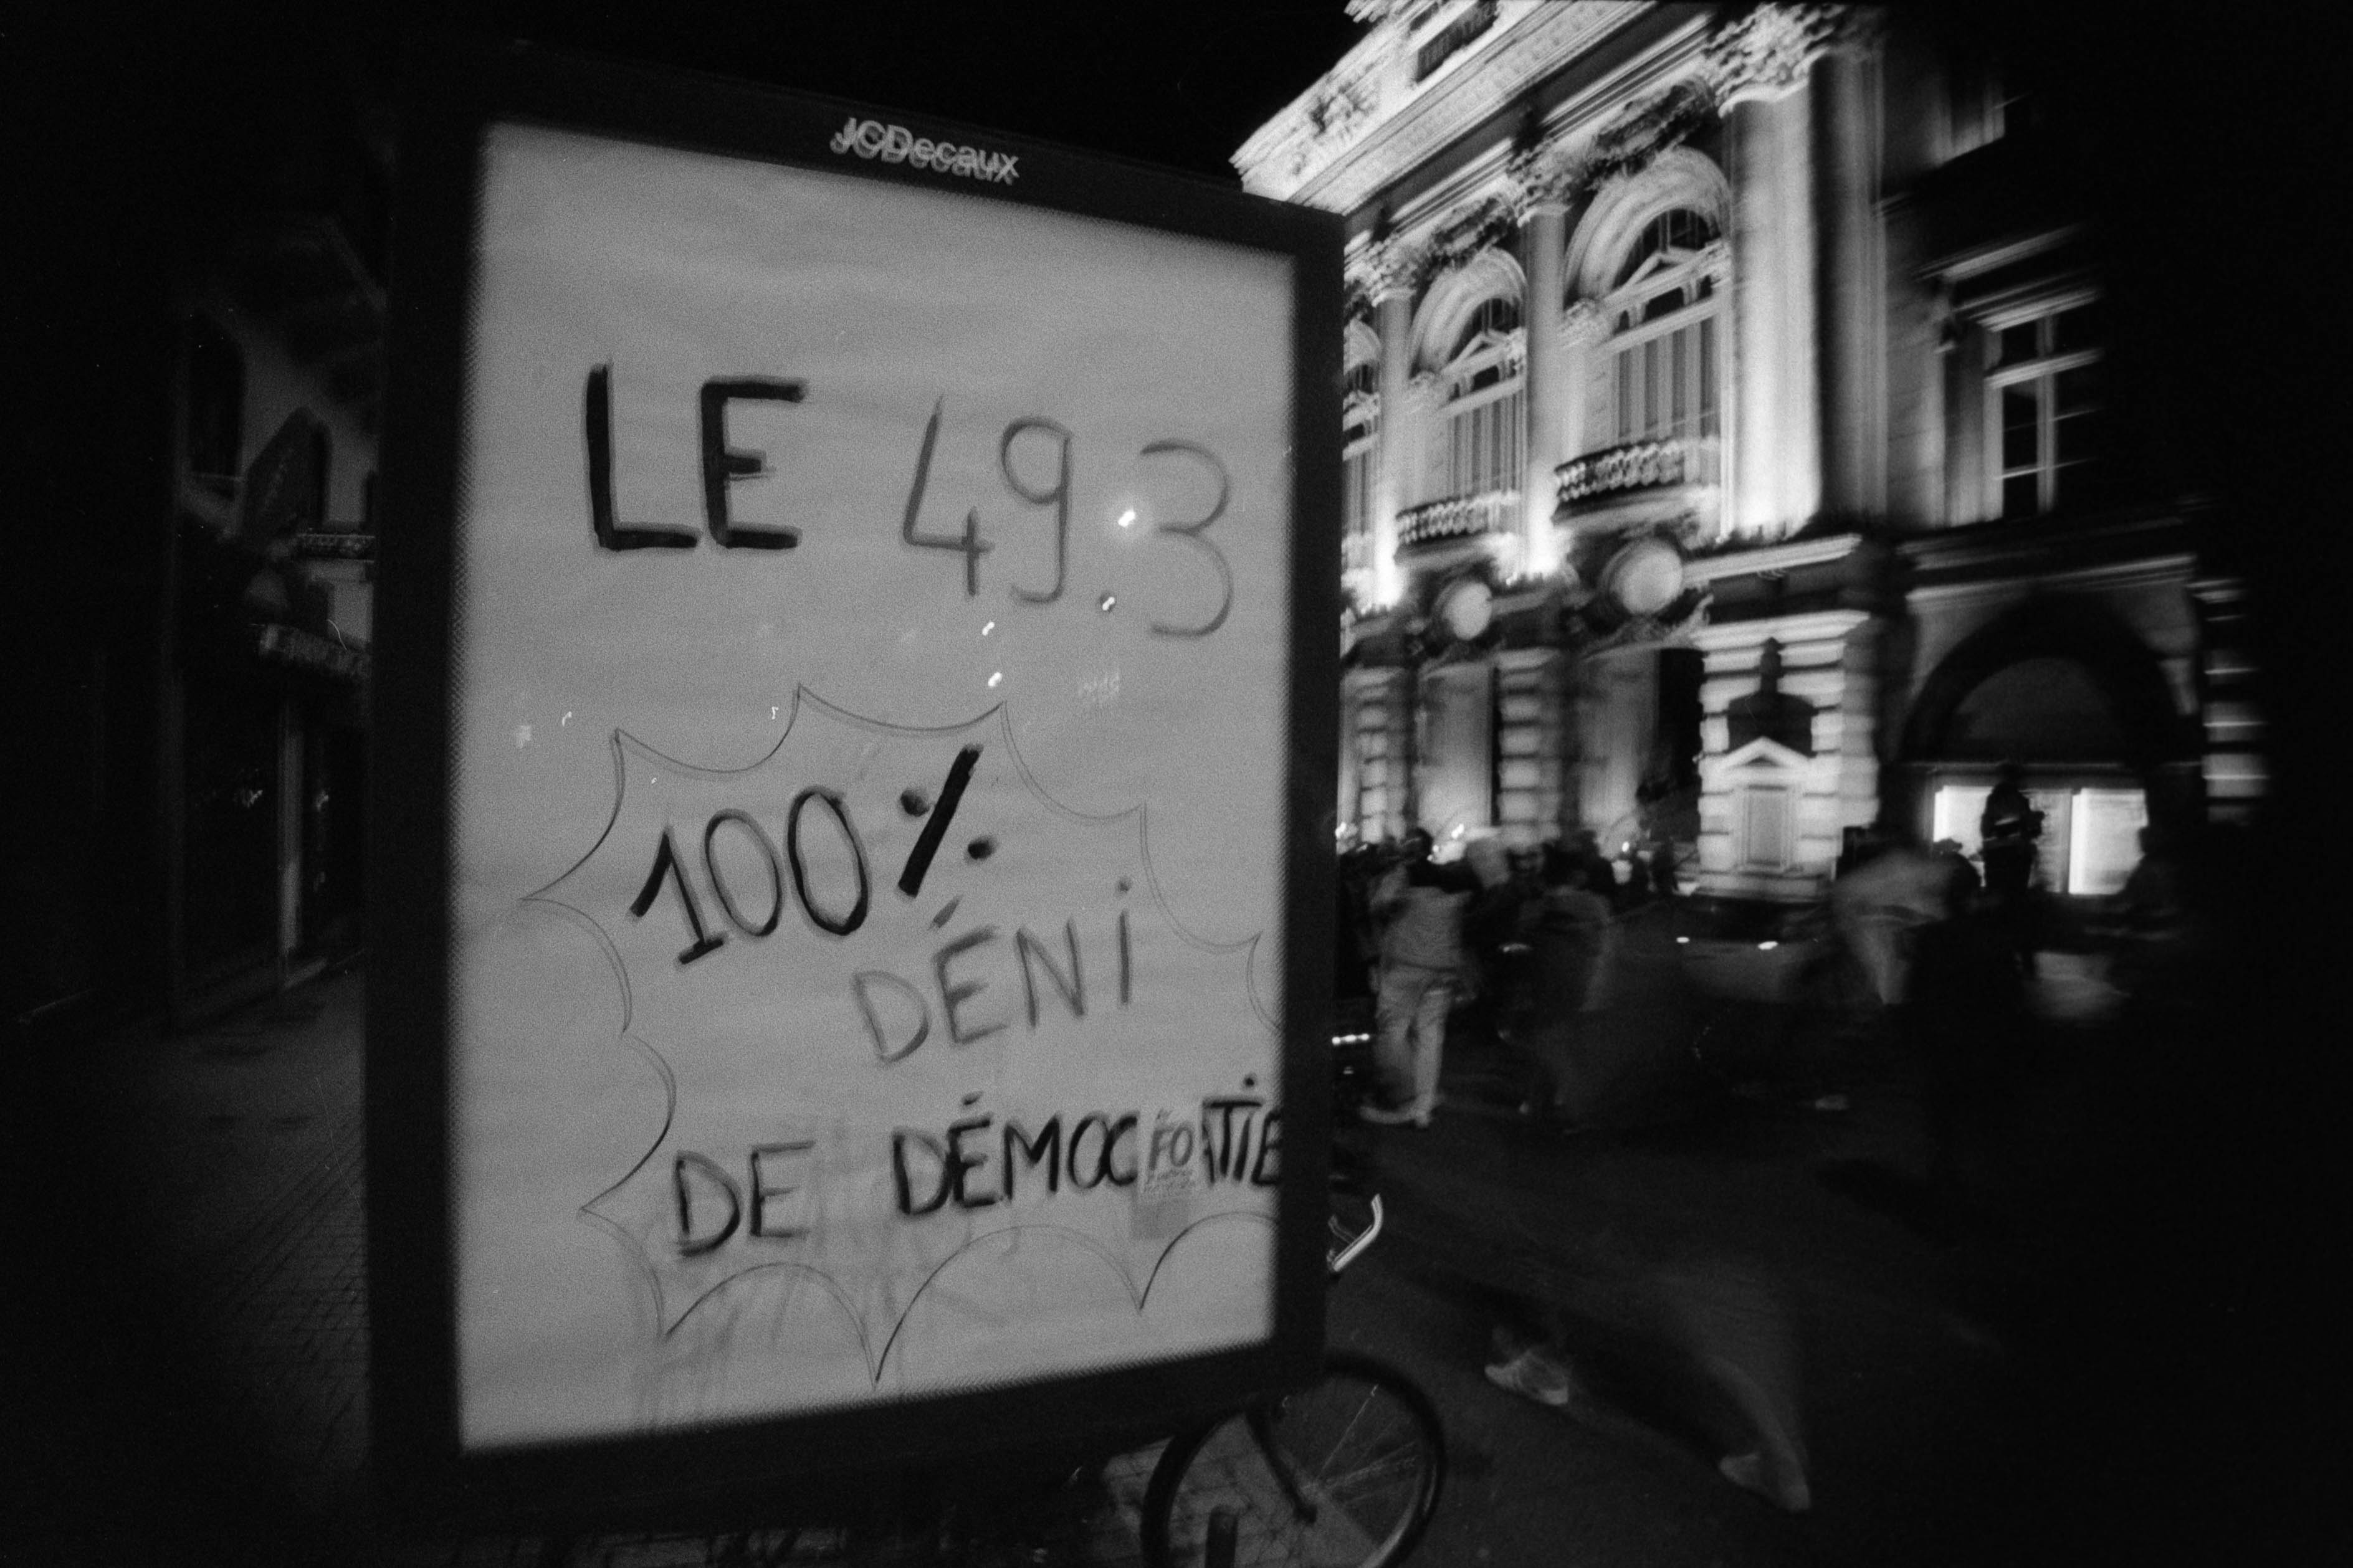 JCDecaux
LE 49.3
100%
DÉNI
DE DÉMOC FO ATIE